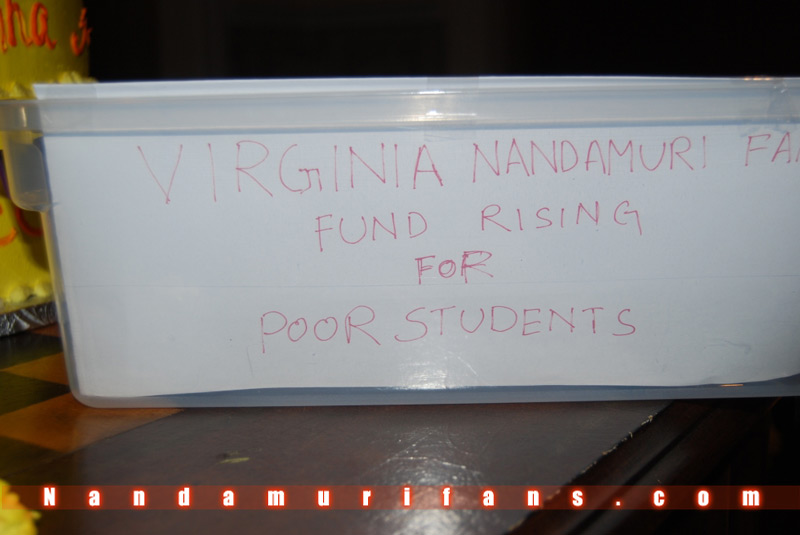 VIRGINIA NANDAMURI FA
FUND RISING
FOR
POOR STUDENTS
Nandamurifans.com